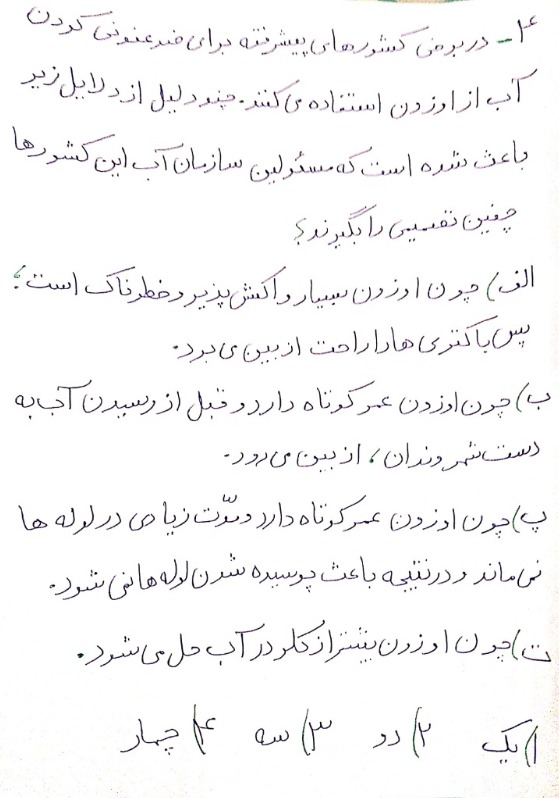 ۴- در برخی کشورهای پیشرفته برای ضدعفونی کردن
آب از اوزون استفاده می‌کنند. چند دلیل از دلایل زیر
باعث شده است که مسئولین سازمان آب این کشورها
چنین تصمیمی را بگیرند؟
الف) چون اوزون بسیار واکنش‌پذیر و خطرناک است؛
پس باکتری‌ها را راحت از بین می‌برد.
ب) چون اوزون عمر کوتاه دارد و قبل از رسیدن آب به
دست شهروندان، از بین می‌رود.
پ) چون اوزون عمر کوتاه دارد و مدّت زیادی در لوله ها
نمی‌ماند و درنتیجه باعث پوسیده شدن لوله‌ها نمی‌شود.
ت) چون اوزون بیشتر از کلر در آب حل می‌شود.
۱) یک ۲) دو ۳) سه ۴) چهار